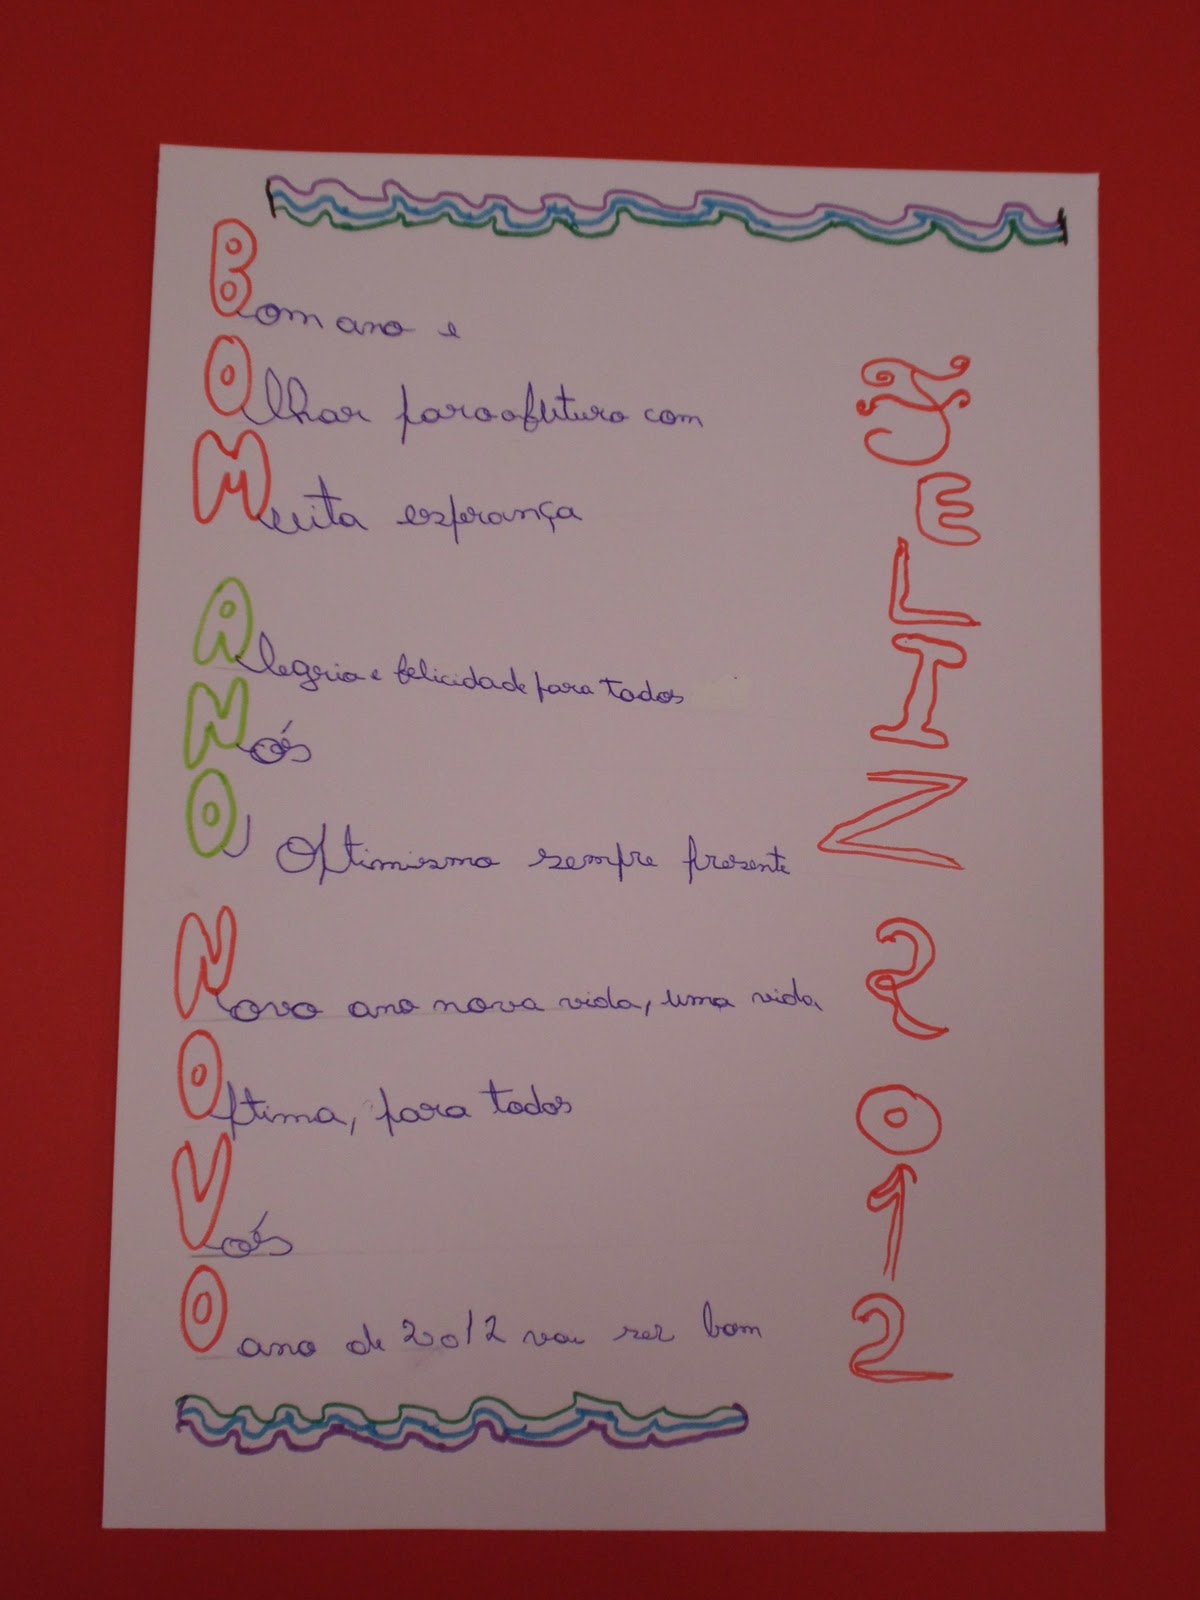 Bom ano e
Olhar para o futuro com
Muita esperança
Alegria e felicidade para todos
Nós
O, Optimismo sempre presente
Novo ano nova vida, uma vida
Óptima, para todos
Vós
O ano de 2012 vai ser bom
FELIZ 2012